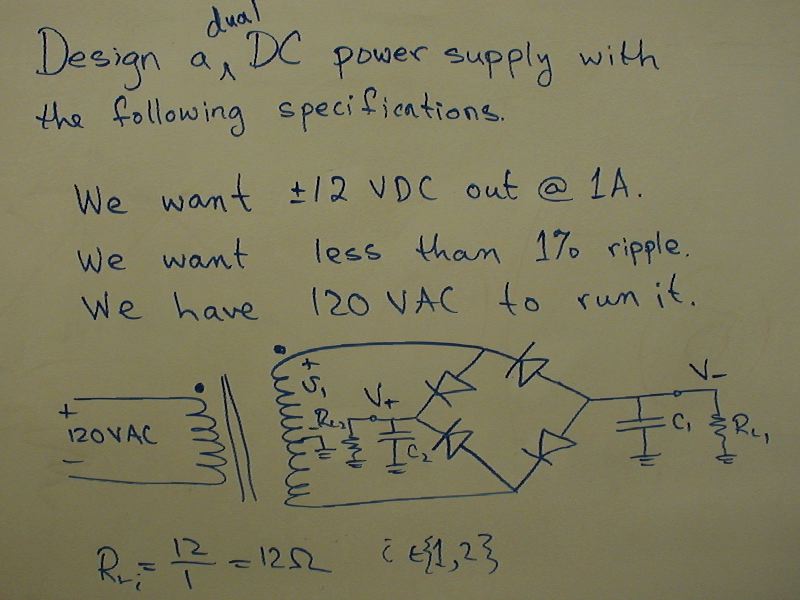 Design a dual DC power supply with
the following specifications.
We want ±12 VDC out @ 1A.
We want less than 1% ripple.
We have 120 VAC to run it.
+
120VAC
-
+
V₊
V₋
R_L₂
C₂
C₁
R_L₁
R_Lᵢ = 12/1 = 12Ω i ∈ {1,2}